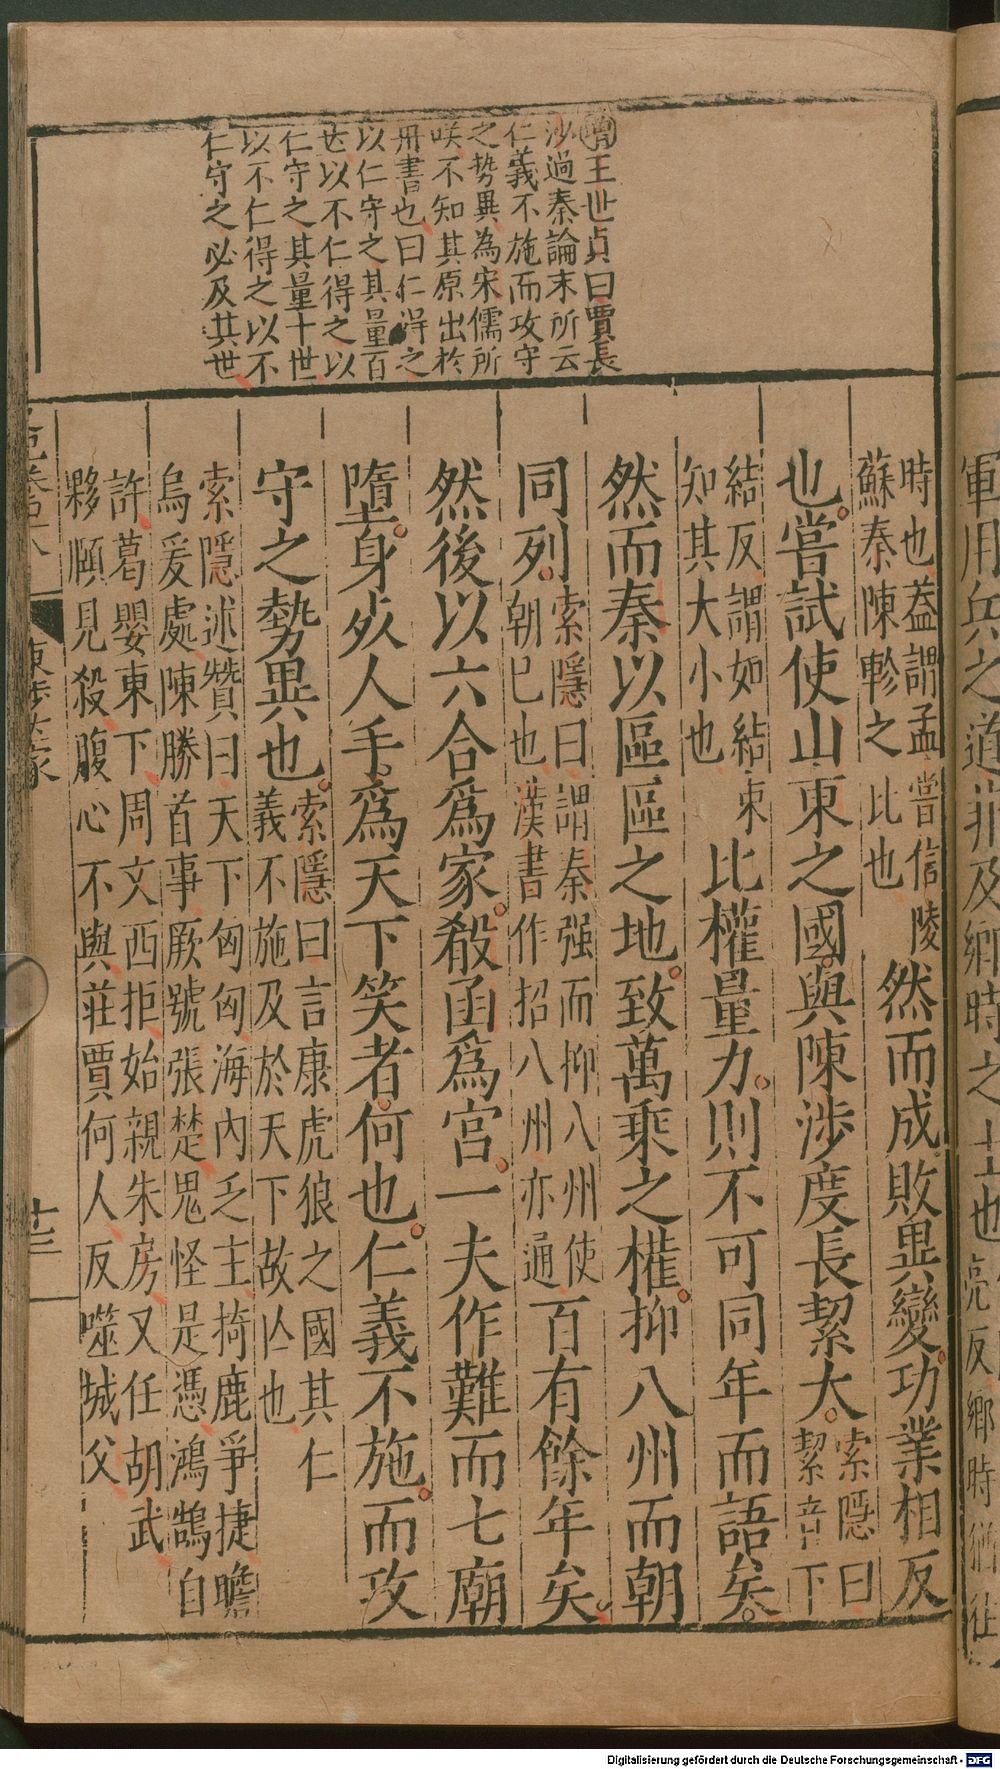 增王世貞曰賈長
沙過秦論末所云
仁義不施而攻守
之勢異為宋儒所
咲不知其原出於
丹書也曰仁得之
以仁守之其量百
世以不仁得之以
仁守之其量十世
以不仁得之以不
仁守之必及其世
時也葢謂孟嘗信陵
蘇秦陳軫之比也
然而成敗異變功業相反
也嘗試使山東之國與陳涉度長絜大
索隱曰
絜音下
結反謂如結束
知其大小也
比權量力則不可同年而語矣
然而秦以區區之地致萬乘之權抑八州而朝
同列
索隱曰謂秦强而抑八州使
朝已也漢書作招八州亦通
百有餘年矣
然後以六合爲家殽函爲宮一夫作難而七廟
墮身死人手爲天下笑者何也仁義不施而攻
守之勢異也
索隱曰言康虎狼之國其仁
義不施及於天下故亾也
索隱述贊曰天下匈匈海內乏主掎鹿爭捷瞻
烏爰處陳勝首事厥號張楚鬼怪是憑鴻鵠自
許葛嬰東下周文西拒始親朱房又任胡武
夥頤見殺腹心不與莊賈何人反噬城父
廿三
軍用兵之道非及鄉時之士也
Digitalisierung gefördert durch die Deutsche Forschungsgemeinschaft - DFG